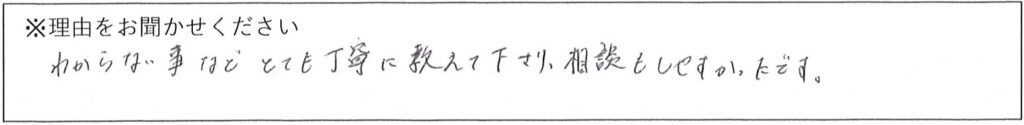 ※理由をお聞かせください
わからない事などとても丁寧に教えて下さり、相談もしやすかったです。